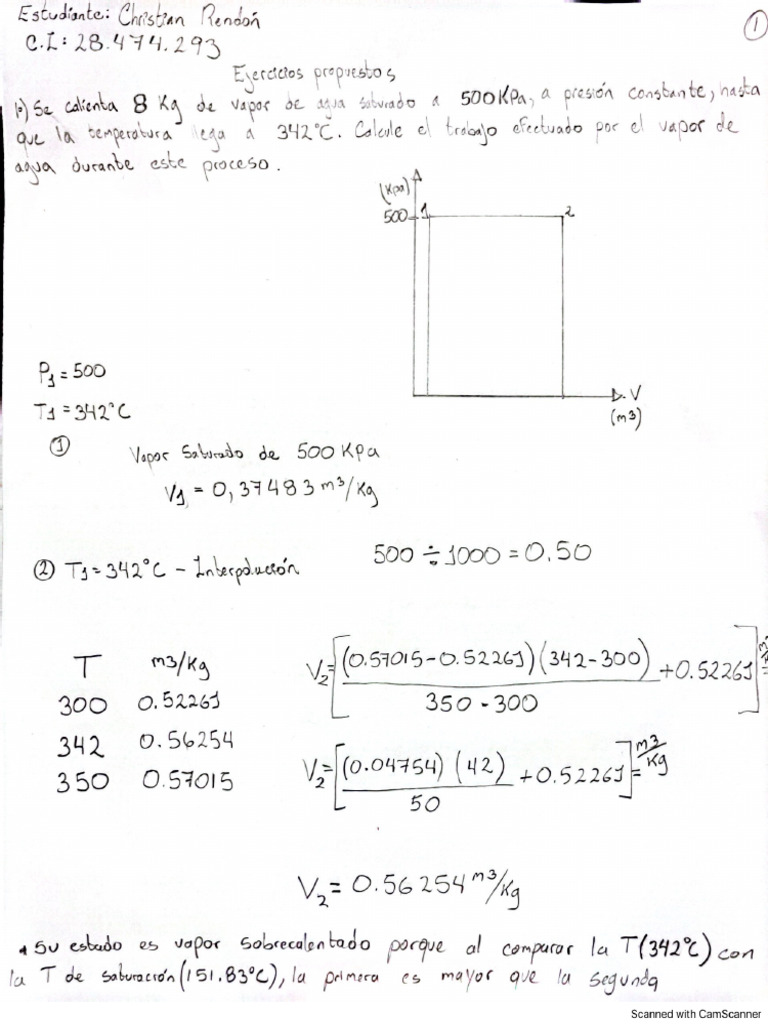 Estudiante: Christian Rendón
1
C.I: 28.474.293
Ejercicios propuestos
1.) Se calienta 8 Kg de vapor de agua saturado a 500KPa, a presión constante, hasta
que la temperatura llega a 342°C. Calcule el trabajo efectuado por el vapor de
agua durante este proceso.
(Kpa)
500 1 2
V
(m3)
P1 = 500
T1 = 342°C
1
Vapor saturado de 500 KPa
V1 = 0,37483 m3/Kg
2 T1 = 342°C - Interpolación
500 ÷ 1000 = 0.50
T m3/Kg
300 0.52261
342 0.56254
350 0.57015
V2=[(0.57015-0.52261)(342-300) / 350-300 + 0.52261]=m3/Kg
V2=[(0.04754)(42) / 50 + 0.52261]=m3/Kg
V2 = 0.56254 m3/Kg
Su estado es vapor sobrecalentado porque al comparar la T(342°C) con
la T de saturación (151.83°C), la primera es mayor que la segunda
Scanned with CamScanner